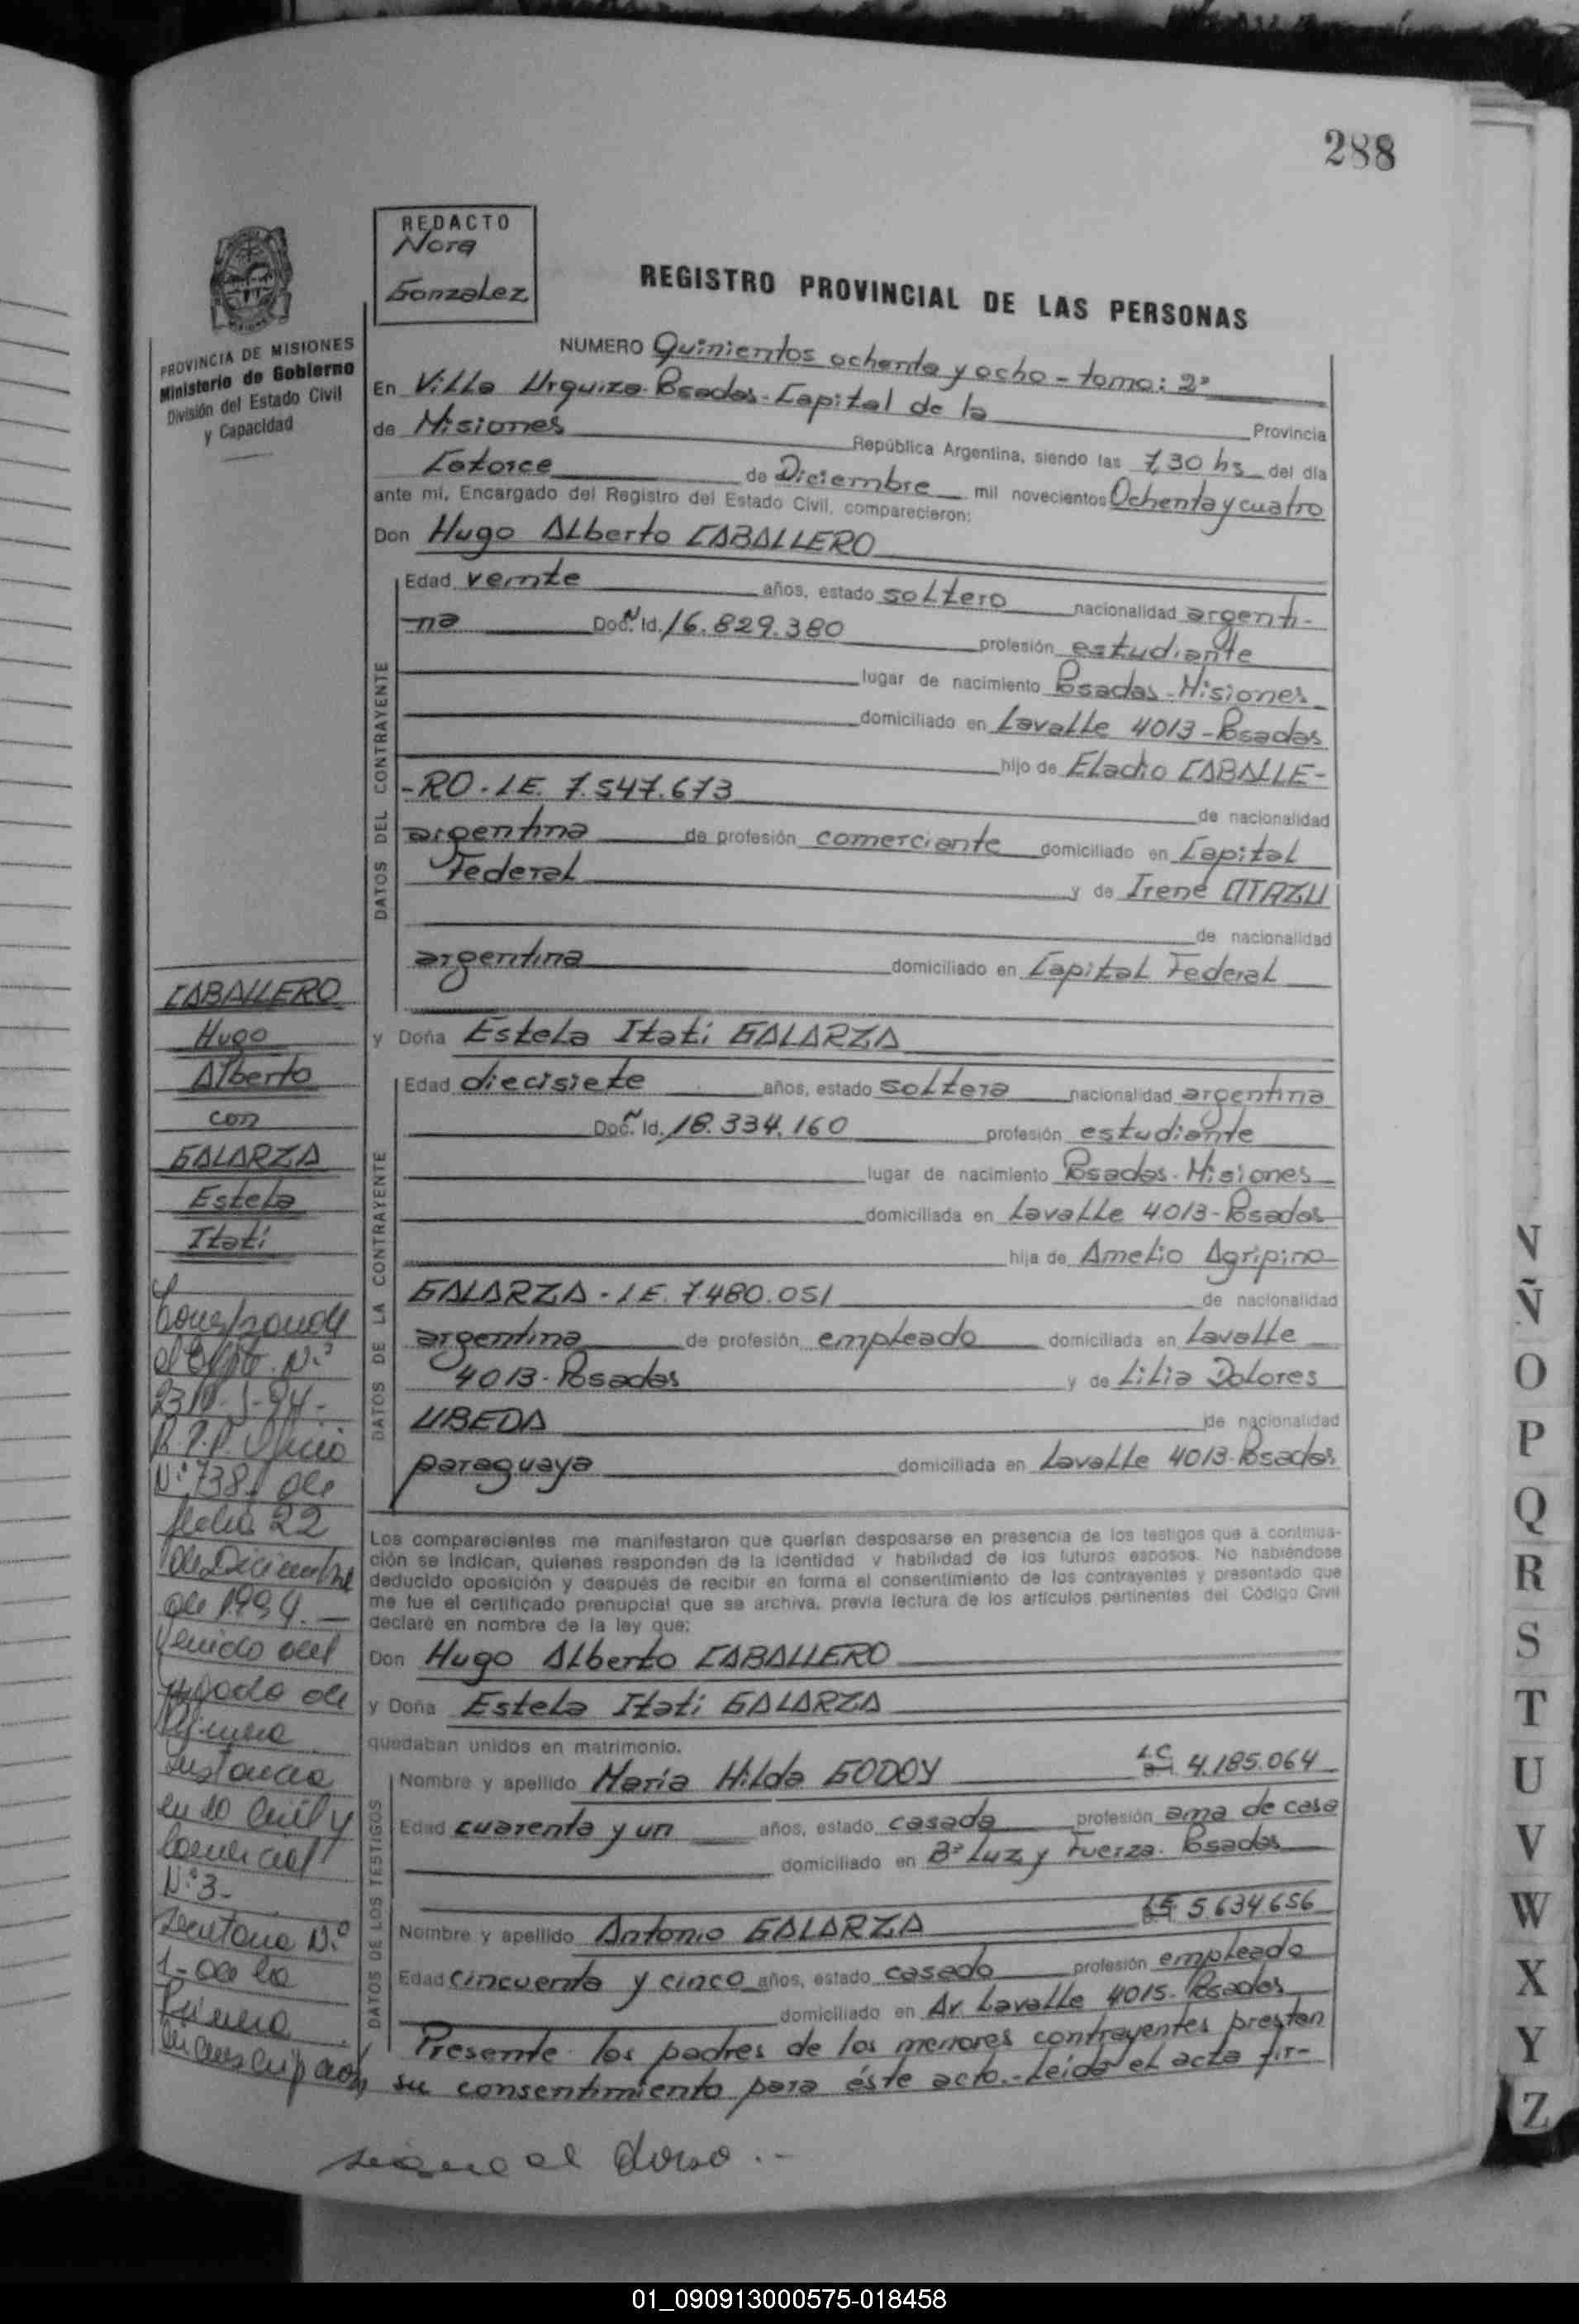 288
REDACTO
Nora
Gonzalez
REGISTRO PROVINCIAL DE LAS PERSONAS
PROVINCIA DE MISIONES
Ministerio de Gobierno
División del Estado Civil
y Capacidad
NUMERO Quinientos ochenta y ocho - tomo: 2º
En Villa Urquiza - Posadas - Capital de la Provincia
de Misiones República Argentina, siendo las 7,30 hs del día
Catorce de Diciembre mil novecientos Ochenta y cuatro
ante mí, Encargado del Registro del Estado Civil, comparecieron:
Don Hugo Alberto CABALLERO
DATOS DEL CONTRAYENTE
Edad veinte años, estado soltero nacionalidad argenti-
na Doc. N Id. 16.829.380 profesión estudiante
lugar de nacimiento Posadas - Misiones
domiciliado en Lavalle 4013 - Posadas
hijo de Eladio CABALLE-
-RO - L.E. 7.547.673 de nacionalidad
argentina de profesión comerciante domiciliado en Capital
Federal y de Irene OTAZU
de nacionalidad
argentina domiciliado en Capital Federal
y Doña Estela Itati GALARZA
DATOS DE LA CONTRAYENTE
Edad diecisiete años, estado soltera nacionalidad argentina
Doc. N Id. 18.334.160 profesión estudiante
lugar de nacimiento Posadas - Misiones
domiciliada en Lavalle 4013 - Posadas
hija de Amelio Agripino
GALARZA - L.E. 7.480.051 de nacionalidad
argentina de profesión empleado domiciliada en Lavalle
4013 - Posadas y de Lilia Dolores
UBEDA de nacionalidad
paraguaya domiciliada en Lavalle 4013 - Posadas
Los comparecientes me manifestaron que querían desposarse en presencia de los testigos que a continua-
ción se indican, quienes responden de la identidad y habilidad de los futuros esposos. No habiéndose
deducido oposición y después de recibir en forma el consentimiento de los contrayentes y presentado que
me fue el certificado prenupcial que se archiva, previa lectura de los artículos pertinentes del Código Civil
declaré en nombre de la ley que:
Don Hugo Alberto CABALLERO
y Doña Estela Itati GALARZA
quedaban unidos en matrimonio.
DATOS DE LOS TESTIGOS
Nombre y apellido Maria Hilda GODOY L.C. 4.185.064
Edad cuarenta y un años, estado casada profesión ama de casa
domiciliado en Bº Luz y Fuerza - Posadas
Nombre y apellido Antonio GALARZA LE 5.634.656
Edad cincuenta y cinco años, estado casado profesión empleado
domiciliado en Av. Lavalle 4015 - Posadas
Presente los padres de los menores contrayentes prestan
su consentimiento para éste acto.- Leída el acta fir-
sigue al dorso.-
CABALLERO
Hugo
Alberto
con
GALARZA
Estela
Itati
Corresponde
al Expte. Nº
R.P.P. Oficio
Nº 738 de
fecha 22
de Diciembre
de 1994.-
Venido del
Juzgado de
Primera
Instancia
en lo Civil y
Comercial
Nº 3-
Secretaria Nº
1- de la
Primera
Circunscripcion
N
Ñ
O
P
Q
R
S
T
U
V
W
X
Y
Z
01_090913000575-018458